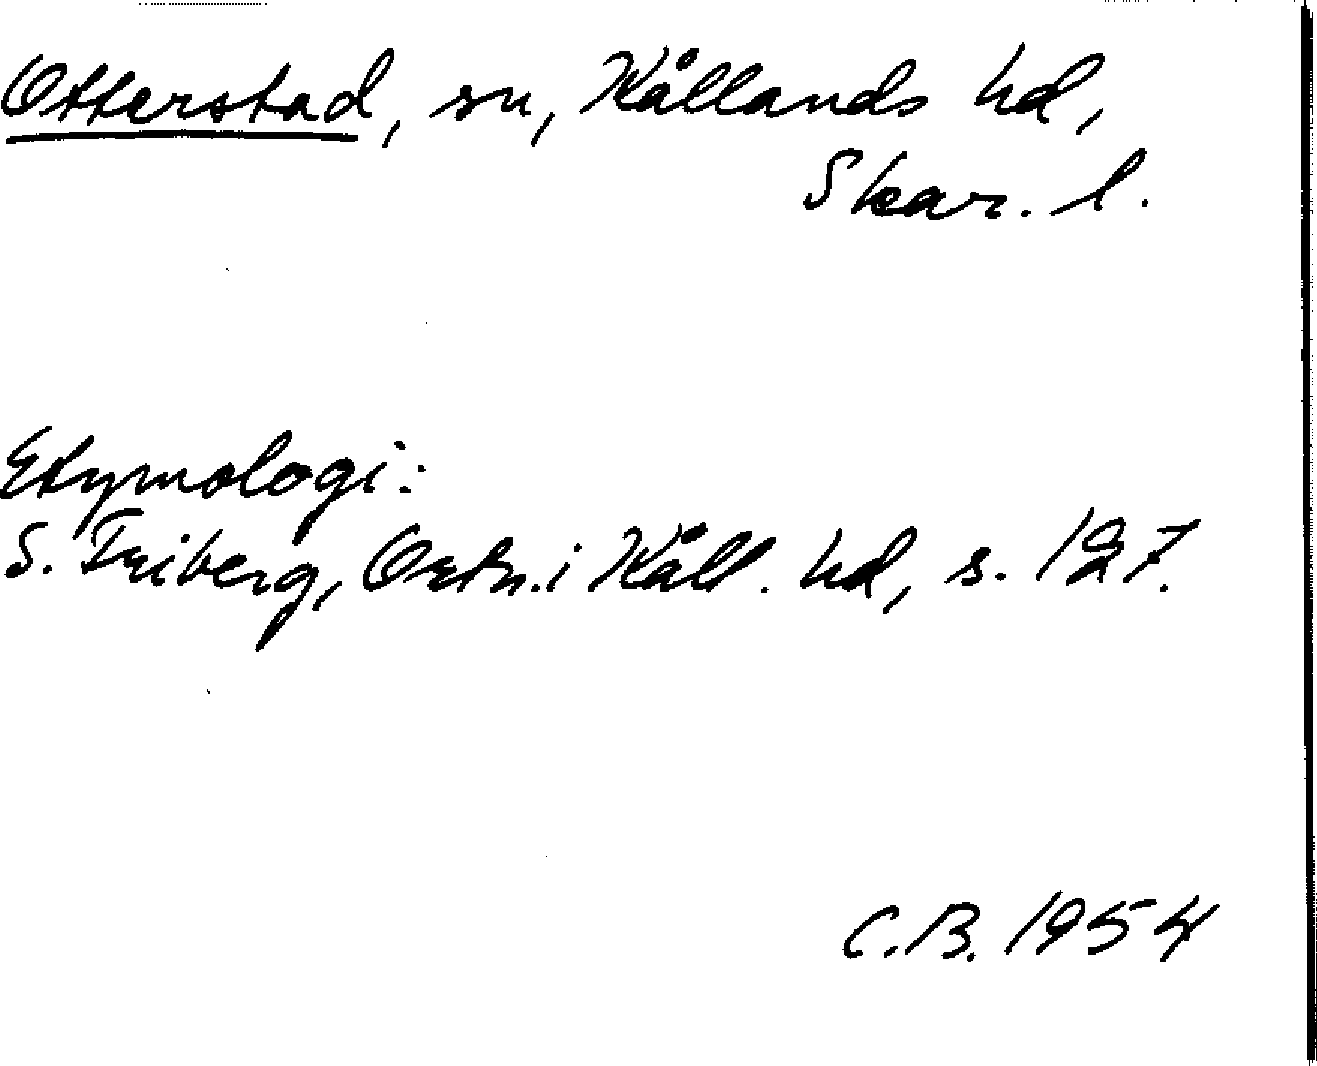 Otterstad, sn, Kållands hd,
Skar. l.
Etymologi:
S. Friberg, Ortn. i Kåll. hd, s. 127.
C.B. 1954